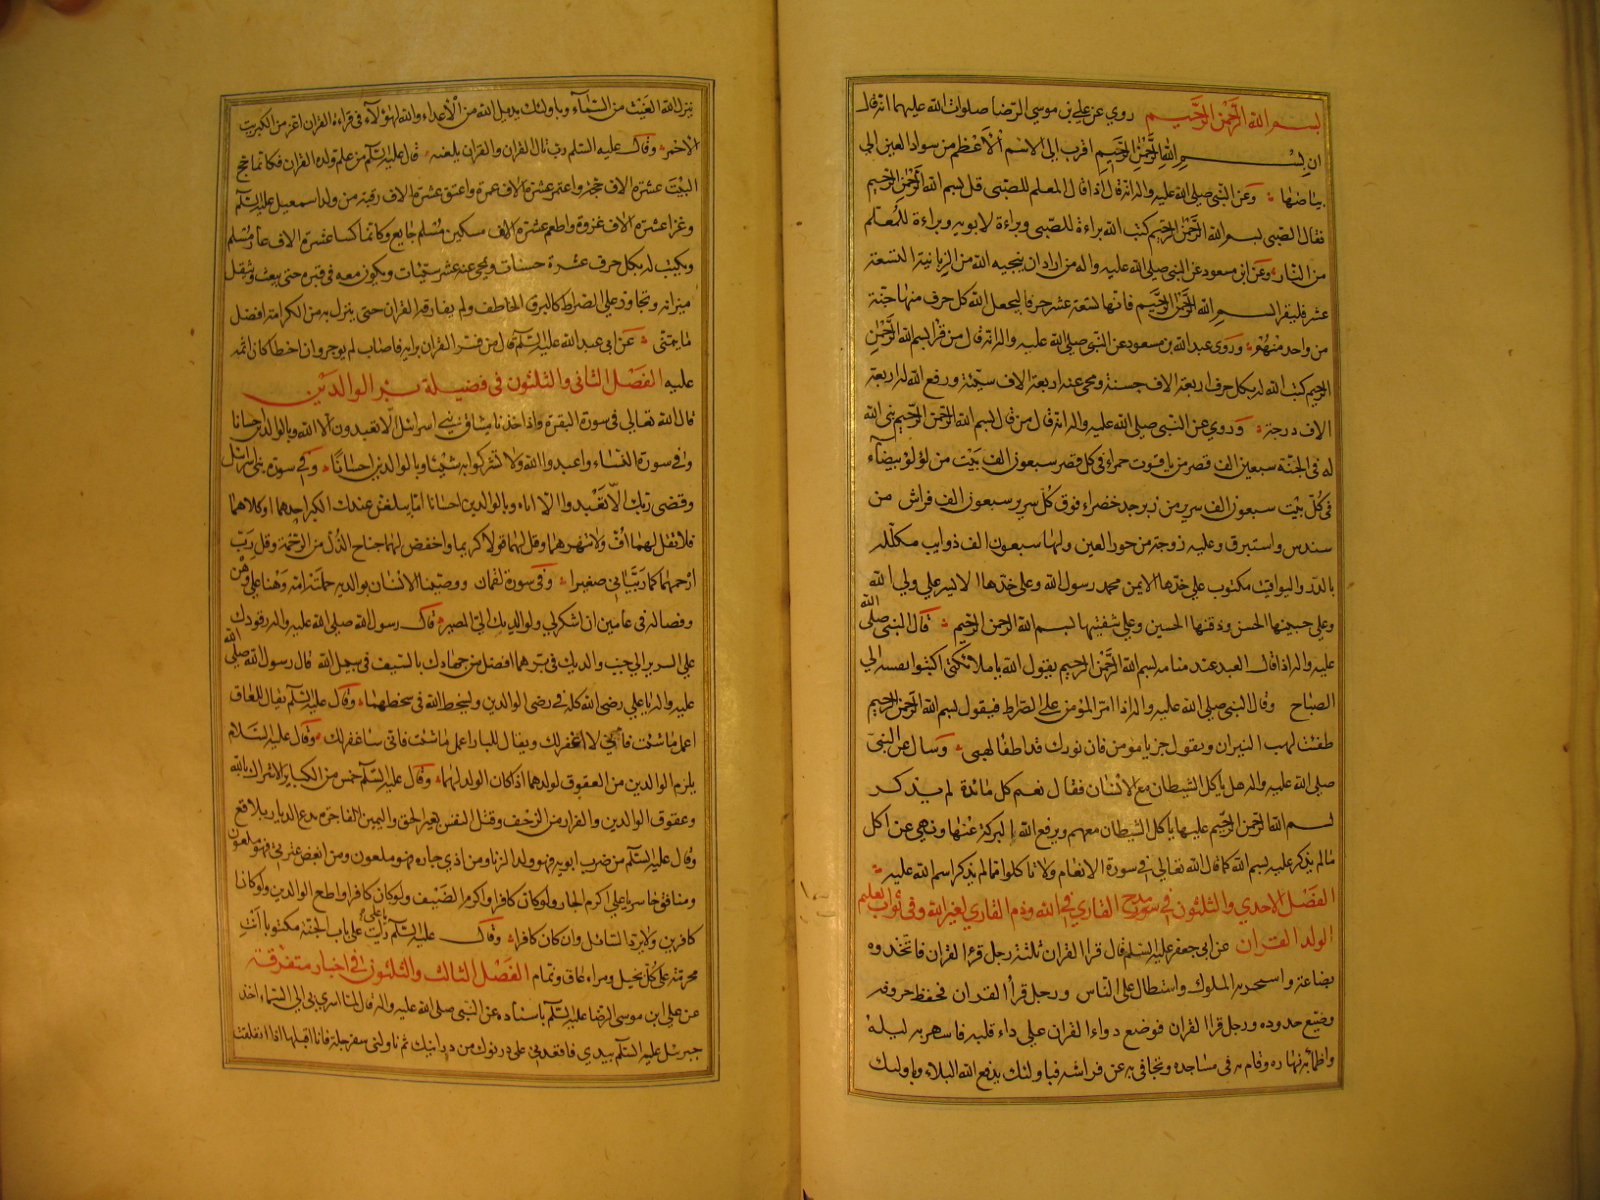 بسم الله الرَّحمٰن الرَّحيم روي عن علي بن موسى الرّضا صلوات الله عليهما انه قال
ان بسم الله الرَّحمٰن الرَّحيم اقرب الى الاسم الاَعظم من سواد العين الي
بياضها وعن النبي صلى الله عليه واله انه قال اذا قال المعلم للصّبي قل بسم الله الرَّحمٰن الرَّحيم
فقال الصّبي بسم الله الرَّحمٰن الرَّحيم كتب الله براءة للصّبي وبراءة لابويه وبراءة للمُعلّم
من النار وعن ابن مسعود عن النبي صلى الله عليه واله من اراد ان ينجيه الله من الزبانية التسعة
عشر فليقرا بسم الله الرَّحمٰن الرَّحيم فانها تسعة عشر حرفا ليجعل الله كل حرف منها جنّة
من واحد منهم وروي عبد الله بن مسعود عن النبي صلى الله عليه واله انه قال من قرا بسم الله الرَّحمٰن
الرحيم كتب الله له بكل حرف اربعة الاف حسنة ومحى عنه اربعة الاف سيّئة ورفع الله له اربعة
الاف درجة وروي عن النبي صلى الله عليه واله انه قال من قال بسم الله الرَّحمٰن الرَّحيم بنى الله
له في الجنّة سبعين الف قصر من ياقوت حمراء في كل قصر سبعون الف بَيْت من لؤلؤ بيضاء
في كُلّ بَيْت سبعون الف سرير من زبرجد خضراء فوق كلّ سرير سبعون الف فراش من
سندس واستبرق وعليه زوجة من حور العين ولها سبعون الف ذوايب مكلّله
بالدّر واليواقيت مكتوب علي خدّها الايمن محمد رسول الله وعلى خدّها الايسر علي ولي الله
وعلى جبينها الحسن وذقنها الحسين وعلى شفتيها بسم الله الرحمن الرحيم قال النبي صلى الله
عليه واله اذا قال العبد عند منامه بسم الله الرَّحمٰن الرحيم يقول الله يا ملائكتي اكتبوا نفسه الي
الصباح وقال النبي صلى الله عليه واله اذا امرّ المؤمن على الصّراط فيقول بسم الله الرَّحمٰن الرَّحيم
طفئت لهب النيران ويقول جز يا مومن فان نورك قد اطفا لهبي وسال عن النبيّ
صلى الله عليه واله هل ياكل الشيطان مع الانسان فقال نعم كل مائدة لم يذكر
بسم الله الرحمن الرحيم عليها ياكل الشيطان معهم ويرفع الله البركة عنها ونهى عن اكل
مالم يذكر عليه بسم الله كما قال الله تعالى في سورة الانعام ولا تاكلوا مما لم يذكر اسم الله عليه
الفَصْل الاحدي والثلثون في مدح القاري في الله وذم القاري لغير الله وفي ثواب تعليم
الولد القران عن ابي جعفر عليه السّلم قال قرا القران ثلثة رجل قرء القران فاتخذوه
بضاعة واستجر به الملوك واستطال على الناس ورجل قرا القران فحفظ حروفه
وضيّع حدوده ورجل قرا القران فوضع دواء القران على داء قلبه فاسهر به ليله
واظما به نهاره وقام به في مساجده وتجافى به عن فراشه فباولئك يدفع الله البلاء وباولئك
ينزل الله الغيث من السّماء وباولئك يديل الله من الاعداء والله لهؤلاء في قراءة القران اعز من الكبريت
الاحمر وقال عليه السّلم رب تال القران والقران يلعنه قال عليه السّلم من علم ولده القران فكانما حج
البيْت عشرة الاف حجّة واعتمر عشرة الاف عمرة واعتق عشرة الاف رقبة من ولد اسمعيل عليه السّلم
وغزا عشرة الاف غزوة واطعم عشرة الاف مسكين مُسْلم جايع وكانما كسا عشرة الاف عار مُسْلم
ويكتب له بكل حرف عشرة حسنات ويمحى عنه عشر سيّئات ويكون معه في قبره حتى يبعث ويثقل
ميزانه وتجاوز علي الصراط كالبرق الخاطف ولم يفارقه القران حتى ينزل به من الكرامة افضل
ما يتمنى عن ابي عبد الله عليه السّلم قال من فسّر القران برايه فاصاب لم يوجر وان اخطا كان اثمه
عليه الفَصْل الثاني والثلثون في فضيلة بر الوالدَين
قال الله تعالى في سورة البقرة واذ اخذنا ميثاق بني اسرائيل لا تعبدون الا الله وبالوالدين احسانا
وفي سورة النساء واعبدوا الله ولا تشركوا به شيئا وبالوالدين احسانا وفي سورة بني اسرائيل
وقضى ربك الّا تَعْبدوا الّا اياه وبالوالدين احسانا امّا يبلغنّ عندك الكبر احدهما او كلاهما
فلا تقل لهما اُفّ ولا تنهرهما وقل لهما قولا كريما واخفض لهما جناح الذُّل من الرّحمة وقل ربّ
ارحمهما كما ربّياني صغيرا وفي سورة لقمان ووصّينا الانسان بوالديه حملته امّه وَهْنا على وهن
وفصاله في عامين ان اشكر لي ولوالديك اليّ المصير قال رسول الله صلى الله عليه واله رقودك
على السرير الي جنب والديك في برّهما افضل من جهادك بالسّيف في سبيل الله قال رسول الله صلى الله
عليه واله يا علي رضى الله كله في رضى الوالدين وليخط الله في سخطهما وقال عليه السّلم يقال للعاق
اعمل ما شئت فاني لا اغفر لك ويقال للبار اعمل ما شئت فاني ساغفر لك وقال عليه السَّلام
يلزم الوالدين من العقوق لولدهما اذ كان الولد لهما وقال عليه السّلم خمس من الكباير الاشراك بالله
وعقوق الوالدين والفرار من الزحف وقتل النفس بغير الحق واليمين الفاجرة تدع الديار بلاقع
وقال عليه السّلم من ضرب ابويه فهو ولد الزنا ومن اذي جاره فهو ملعون ومن ابغض عترتي فهو ملعون
ومنافق خاسر يا علي اكرم الجار ولو كان كافرا واكرم الضّيف ولو كان كافرا واطع الوالدين ولو كانا
كافرين ولا يرد السّائل وان كان كافرا وقال عليه السّلم يا علي رايت على باب الجنّة مكتوبا انت
محرمة على كلّ بخيل ومراء وعاق ونمام الفَصْل الثالث والثلثون في اخبار متفرّقة
عن علي ابن موسى الرضا عليه السّلم باسناده عن النبي صلى الله عليه واله قال لما اسري بي الي السّماء اخذ
جبرئيل عليه السّلم بيدي فاقعدني على درنوك من درانيك ثم ناولني سفرجلة فانا اقبلها اذا انفلقت